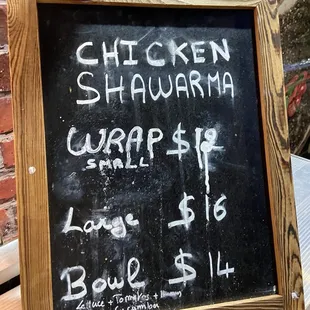 CHICKEN
SHAWARMA
WRAP $12
SMALL
Large $16
Bowl $14
Lettuce + Tomatoes + Hummus
Cucumber